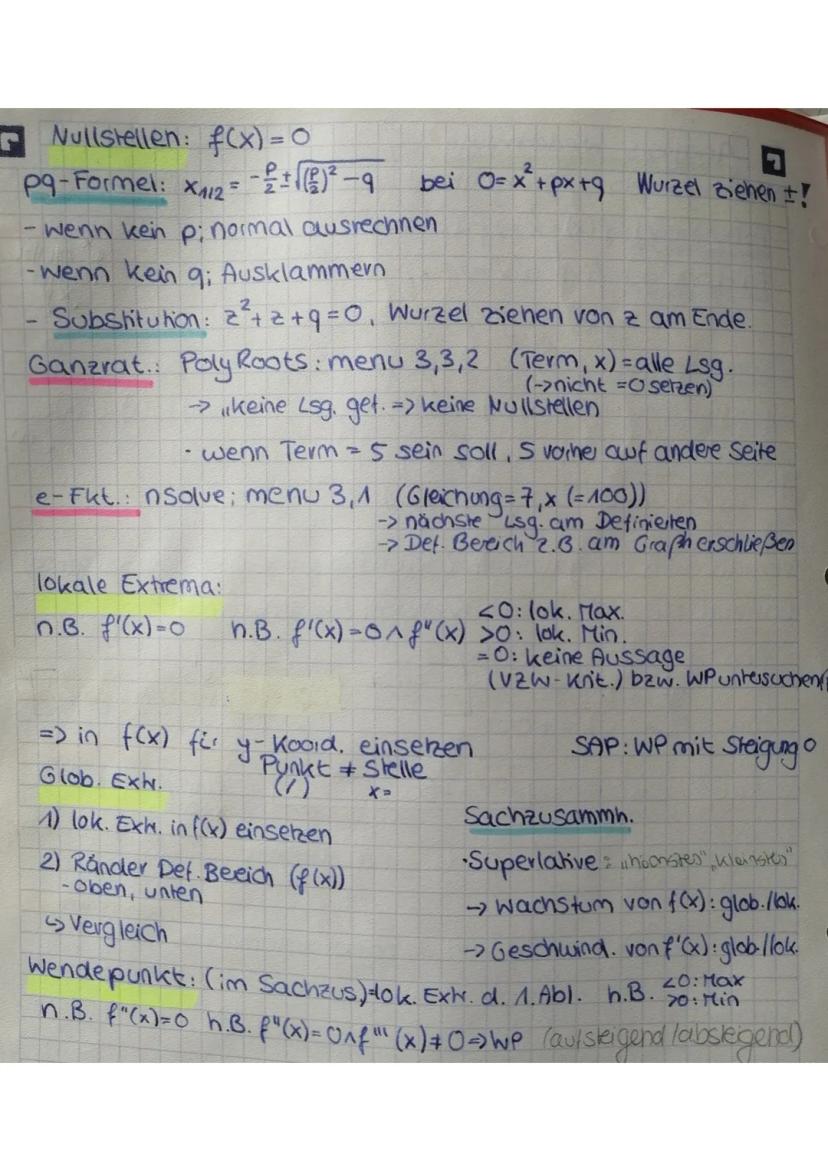 Nullstellen: f(x) = 0
pq-Formel: x₁/₂ = -p/2 ± √((p/2)² - q) bei 0 = x² + px + q Wurzel ziehen ±!
- wenn kein p; normal ausrechnen
- wenn kein q; Ausklammern
- Substitution: z² + z + q = 0, Wurzel ziehen von z am Ende.
Ganzrat.: PolyRoots: menu 3,3,2 (Term, x) = alle Lsg.
(-> nicht = 0 setzen)
-> „keine Lsg. gef. => keine Nullstellen
· wenn Term = 5 sein soll, 5 vorher auf andere Seite
e-Fkt.: nSolve; menu 3,1 (Gleichung = 7, x (=100))
-> nächste Lsg. am Definierten
-> Def. Bereich z.B. am Graph erschließen
lokale Extrema:
n.B. f'(x) = 0 h.B. f'(x) = 0 ∧ f''(x) <0: lok. Max.
>0: lok. Min.
= 0: keine Aussage
(VZW-Krit.) bzw. WP untersuchen
=> in f(x) für y-Koord. einsetzen SAP: WP mit Steigung 0
Punkt ≠ Stelle
(/) x=
Glob. Extr.
1) lok. Extr. in f(x) einsetzen
2) Ränder Def. Bereich (f(x))
- oben, unten
↳ Vergleich
Sachzusammh.
· Superlative: „höchstes", „kleinstes"
-> Wachstum von f(x): glob./lok.
-> Geschwind. von f'(x): glob./lok.
Wendepunkt: (im Sachzus.) = lok. Extr. d. 1. Abl. h.B. <0: Max
>0: Min
n.B. f''(x) = 0 h.B. f''(x) = 0 ∧ f'''(x) ≠ 0 => WP (aufsteigend/absteigend)